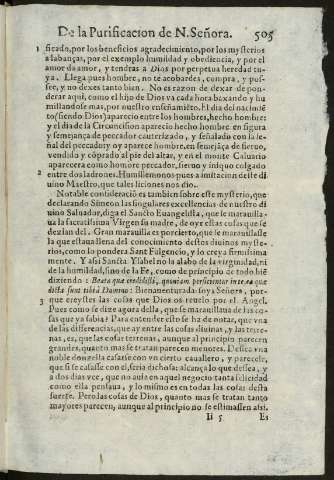 De la Purificacion de N. Señora. 505
1 ficado, por los beneficios agradecimiento, por los mysterios
alabanças, por el exemplo humildad y obediencia, y por el
amor da amor, y tendras a Dios por perpetua heredad tu-
ya. Llega pues hombre, no te acobardes, compra, y pos-
see, y no dexes tanto bien. No es razon de dexar de pon-
derar aqui, como el hijo de Dios va cada hora baxando y hu
millandose mas, por nuestro enseñamiẽto. El dia del nacimiẽ
to (siendo Dios) aparecio entre los hombres, hecho hombre:
y el dia de la Circuncision aparecio hecho hombre en figura
y semejança de pecador cauterizado, y señalado con la se-
ñal del peccador y oy aparece hombre, en semejãça de sieruo,
vendido y cõprado al pie del altar, y en el monte Caluario
aparecera como hombre peccador, sieruo y iniquo colgado
2 entre dos ladrones. Humillemonos pues a imitacion deste di
uino Maestro, que tales liciones nos dio.
Notable consideraciõ es tambien sobre este mysterio, que
declarando Simeon las singulares excellencias de nuestro di
uino Saluador, diga el Sancto Euangelista, que se marauilla-
ua la sacratissima Virgen su madre, de oyr estas cosas que se
dezian del. Gran marauilla es por cierto, que se marauillasse
la que estaua llena del conocimiento destos diuinos myste-
rios, como lo pondera Sant Fulgencio, y lo creya firmissima
mente. Y assi Sancta Ysabel no la alabo de la virginidad, ni
de la humildad, sino de la Fe, como de principio de todo biẽ
diziendo: Beata quæ credidisti, quoniam perficientur in te ea quæ
dicta sunt tibi à Domino: Bienauenturada soys Señora, por-
3 que creystes las cosas que Dios os reuelo por el Angel.
Pues como se dize agora della, que se marauillaua de las co-
sas que ya sabia? Para entender esto se ha de notar, que vna
de las differencias, que ay entre las cosas diuinas, y las terre-
nas, es, que las cosas terrenas, aunque al principio parecen
grandes, quanto mas se tratan parecen menores. Dessea vna
noble donzella casarse con vn cierto cauallero, y parecele,
que si se casasse con el, seria dichosa: alcança lo que dessea, y
a dos dias vee, que no auia en aquel negocio tanta felicidad
como ella pensaua, y lo mismo es en todas las cosas desta
suerte. Pero las cosas de Dios, quanto mas se tratan tanto
mayores parecen, aunque al principio no se estimassen assi.
Ii 5 Es